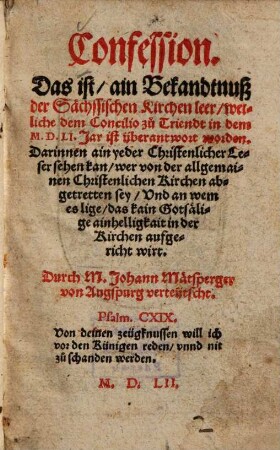 Confession.
Das ist/ ain Bekandtnuß
der Sächssischen Kirchen leer/ wel-
liche dem Concilio zů Triendt in dem
M. D. LI. Jar ist überantwort worden.
Darinnen ain yeder Christenlicher Le-
ser sehen kan/ wer von der allgemai-
nen Christenlichen Kirchen abge-
getretten sey/ Und an wem
es lige/ das kain Gotsäli-
ge ainhelligkait in der
Kirchen aufge-
richt wirt.
Durch M. Johann Mätsperger
von Augspurg verteütscht.
Psalm. CXIX.
Von deinen zeügknussen will ich
vor den Künigen reden/ vnnd nit
zů schanden werden.
M. D. LII.